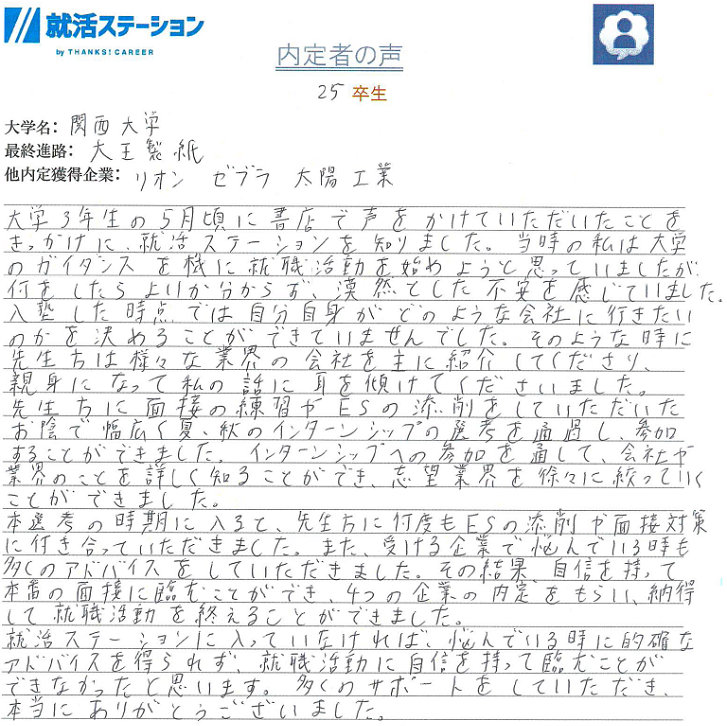 就活ステーション
by THANKS! CAREER
内定者の声
25 卒生
大学名: 関西大学
最終進路: 大王製紙
他内定獲得企業: リオン ゼブラ 太陽工業
大学3年生の5月頃に書店で声をかけていただいたことを
きっかけに、就活ステーションを知りました。当時の私は大学
のガイダンスを機に就職活動を始めようと思っていましたが、
何をしたらよいか分からず、漠然とした不安を感じていました。
入塾した時点では自分自身がどのような会社に行きたい
のかを決めることができていませんでした。そのような時に
先生方は様々な業界の会社を主に紹介してくださり、
親身になって私の話に耳を傾けてくださいました。
先生方に面接の練習やESの添削をしていただいた
お陰で幅広く夏、秋のインターンシップの選考を通過し、参加
することができました。インターンシップへの参加を通して、会社や
業界のことを詳しく知ることができ、志望業界を徐々に絞っていく
ことができました。
本選考の時期に入ると、先生方に何度もESの添削や面接対策
に付き合っていただきました。また、受ける企業で悩んでいる時も
多くのアドバイスをしていただきました。その結果、自信を持って
本番の面接に臨むことができ、4つの企業の内定をもらい、納得
して就職活動を終えることができました。
就活ステーションに入っていなければ、悩んでいる時に的確な
アドバイスを得られず、就職活動に自信を持って臨むことが
できなかったと思います。多くのサポートをしていただき、
本当にありがとうございました。